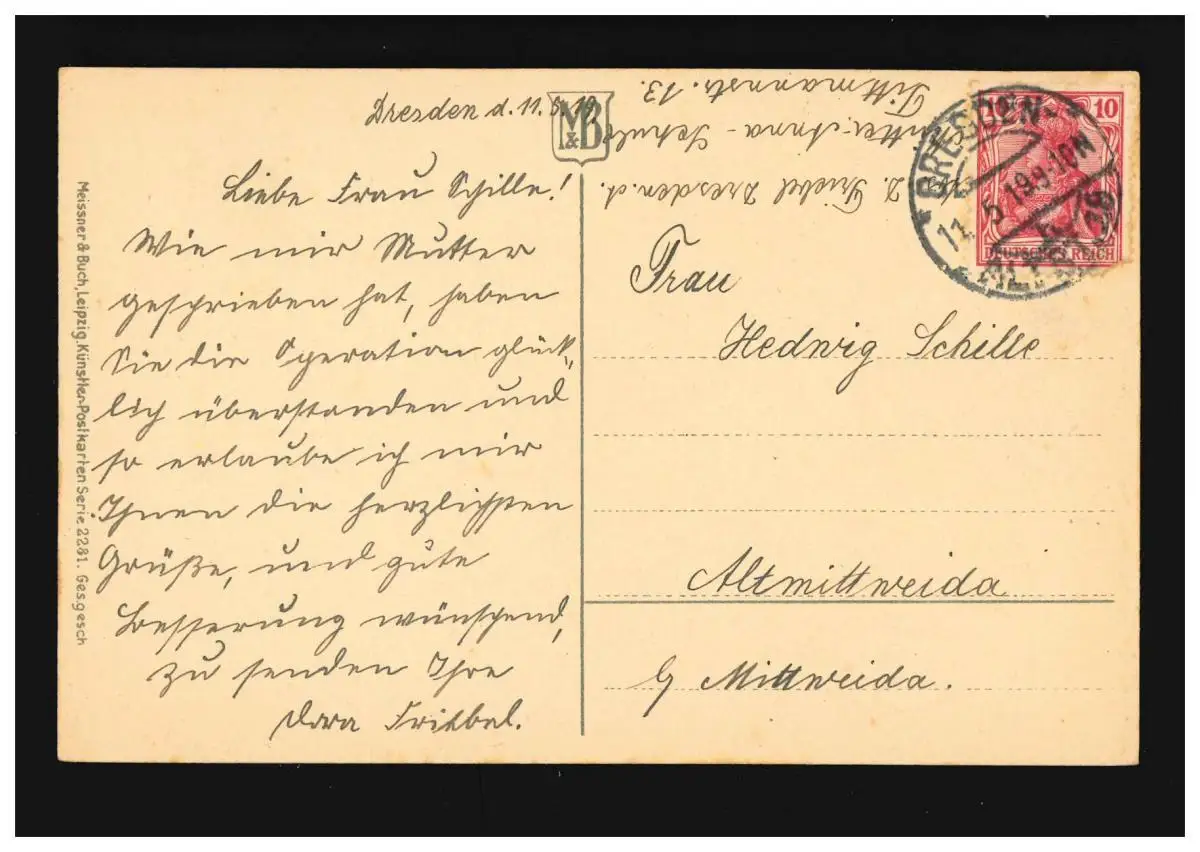 Dresden d. 11.5.19.
Liebe Frau Schille!
Wie mir Mutter
geschrieben hat, haben
Sie die Operation glück-
lich überstanden und
so erlaube ich mir
Ihnen die herzlichsten
Grüße, und gute
Besserung wünschend,
zu senden Ihre
Dora Friebel.
Meissner & Buch, Leipzig. Künstler-Postkarten Serie 2281. Ges. gesch
M&B
D. Friebel Dresden.
Anna-
Tittmannstr. 13.
10
DEUTSCHES REICH
DRESDEN-
11.5.19.9-10N
Frau
Hedwig Schille
Altmittweida
b/ Mittweida.